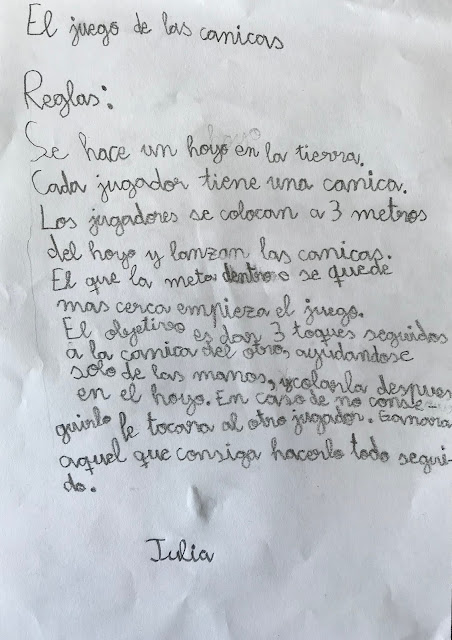 El juego de las canicas
Reglas:
Se hace un hoyo en la tierra.
Cada jugador tiene una canica.
Los jugadores se colocan a 3 metros
del hoyo y lanzan las canicas.
El que la meta dentro o se quede
mas cerca empieza el juego.
El objetivo es dar 3 toques seguidos
a la canica del otro, ayudandose
solo de las manos, y colarla despues
en el hoyo. En caso de no conse-
guirlo le tocara al otro jugador. Ganara
aquel que consiga hacerlo todo segui-
do.
Julia